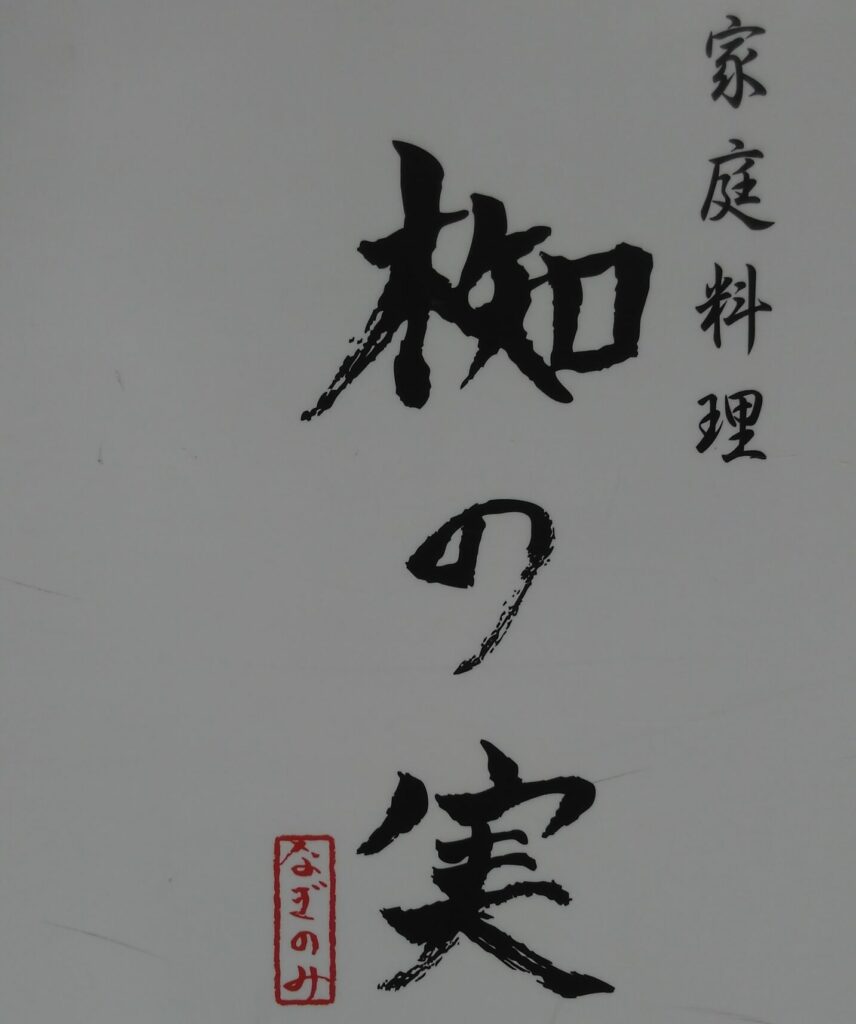 家庭料理
椥の実
なぎのみ